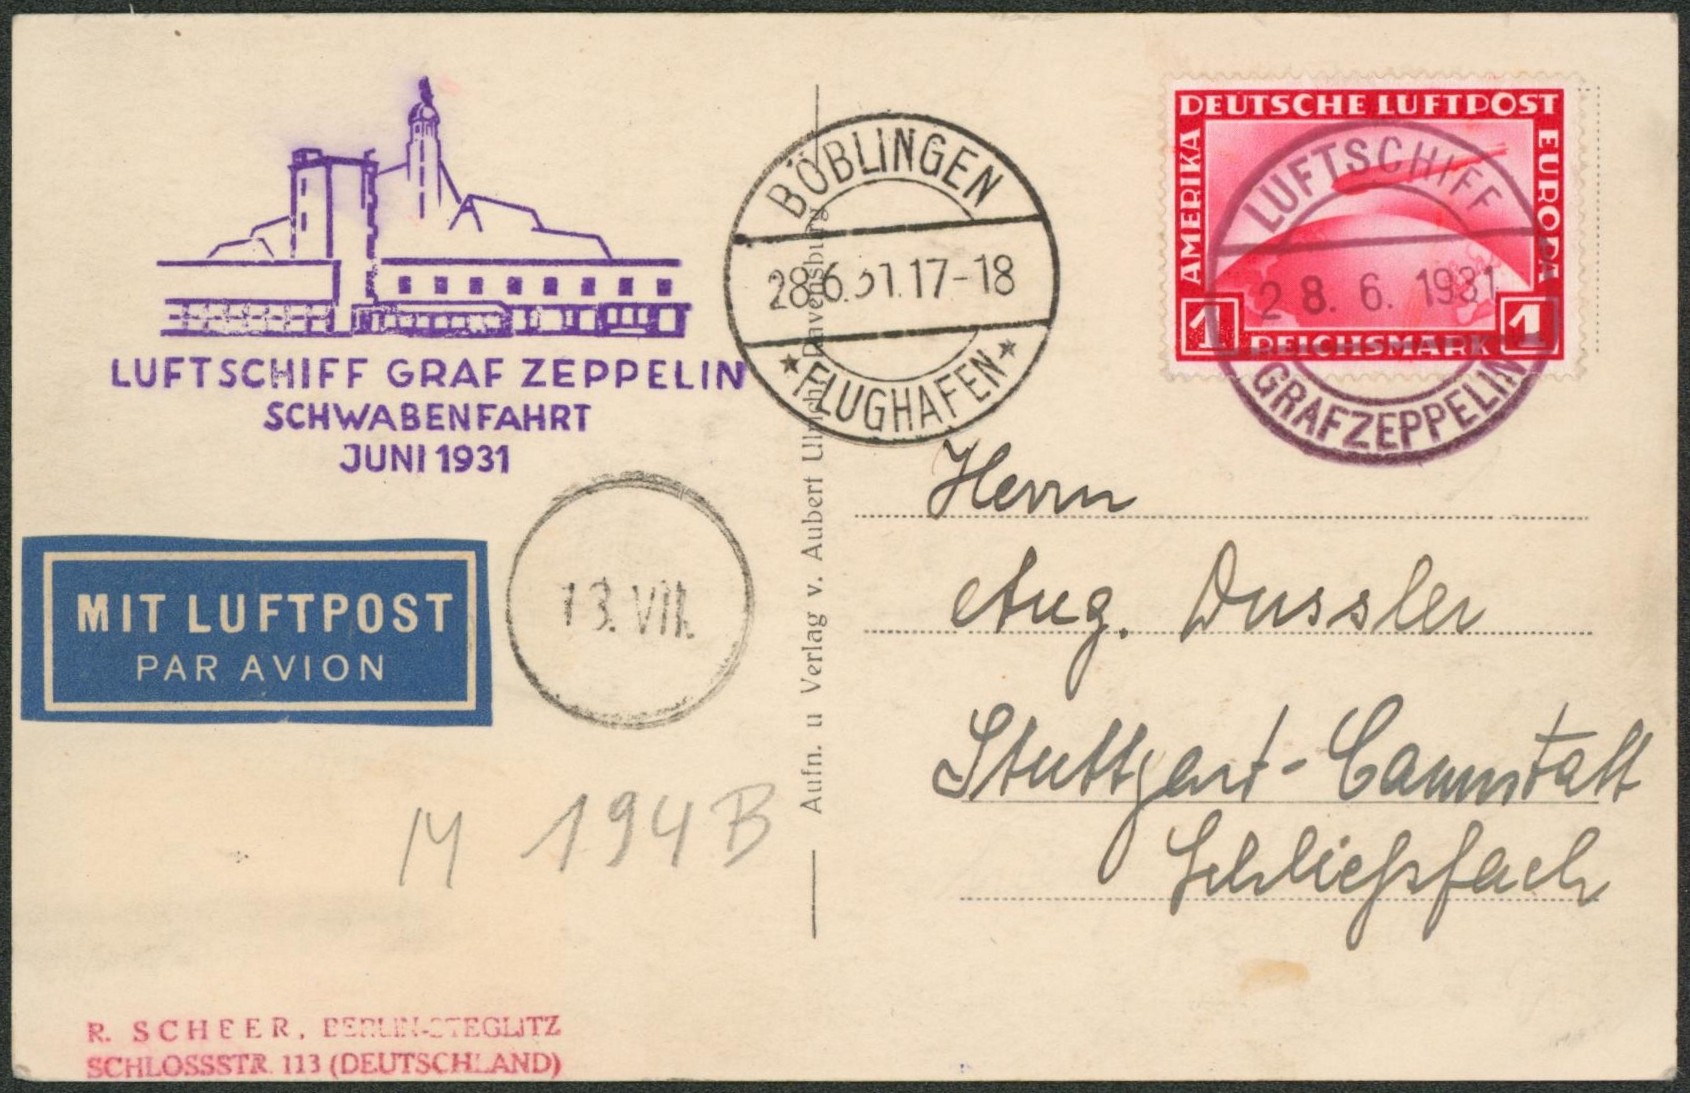 LUFTSCHIFF GRAF ZEPPELIN
SCHWABENFAHRT
JUNI 1931
BÖBLINGEN
28.6.31.17-18
★ FLUGHAFEN ★
DEUTSCHE LUFTPOST
AMERIKA
EUROPA
1 REICHSMARK 1
LUFTSCHIFF
28. 6. 1931
GRAF ZEPPELIN
MIT LUFTPOST
PAR AVION
13. VII.
Aufn. u Verlag v. Aubert Ulrich, Ravensburg
Herrn
Aug. Dussler
Stuttgart-Cannstatt
Schließfach
M 194B
R. SCHEER, BERLIN-STEGLITZ
SCHLOSSSTR. 113 (DEUTSCHLAND)